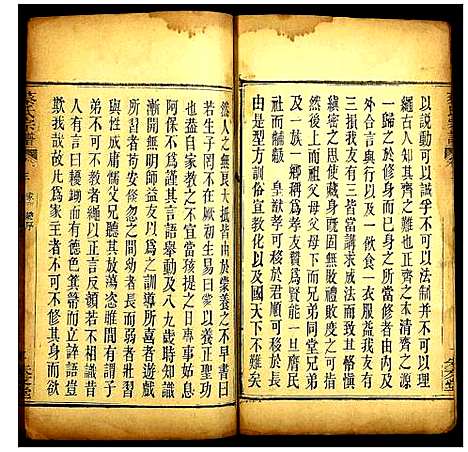 以說動可以誠孚不可以法制可以理
繩古人知其齊之難也正齊之本清齊之源
一歸之於修身而已身而已當修者由內及
外合言與行以及一飲食一衣服益我友有
三損我友有三皆當講求威法而致其愼愼
縝密之思使藏身既固無敗禮敗度之可指
然後上而祖父母父母下而兄弟同堂兄弟
及一族一鄉稱爲孝友薦爲賢能一旦膺民
社而黼黻
皇猷孝可移於君悌可移於長
由是型方訓俗宣教化以及國天下不難矣
然人之無良大抵皆由於蒙養之不早書曰
若生子罔不在厥初生易曰蒙以養正聖功
也蓋自家教之不宜當孩提之日專事姑息
阿保不爲也其言語舉動及八九歲時知識
漸開無明師益友以爲之訓導所爲者遊戲
之事苟安
忽之間功者長而弱者壯習
與性成庸懦父兄聽其放蕩恣睢間有謂子
弟不可不教者繩以正言反領若不相識昔
人有言曰耰鋤而有德色箕箒而立誶語豈
欺我哉故凡爲家主者不可不修其身而欲